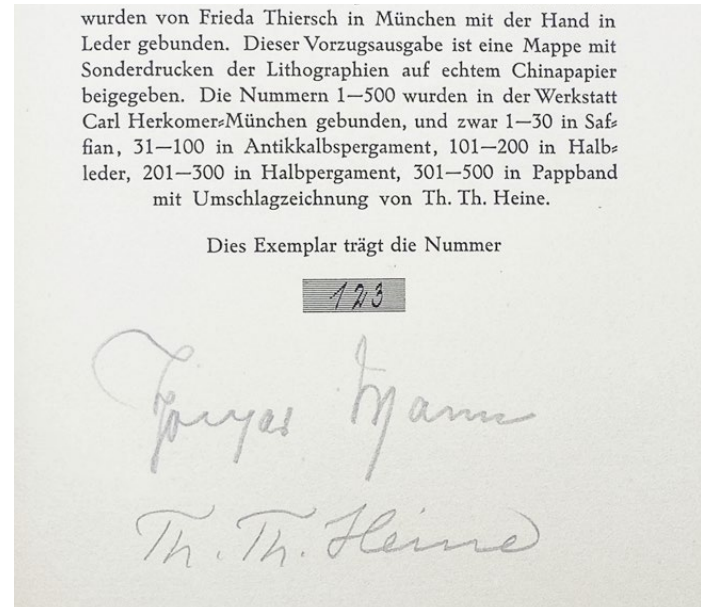 wurden von Frieda Thiersch in München mit der Hand in
Leder gebunden. Dieser Vorzugsausgabe ist eine Mappe mit
Sonderdrucken der Lithographien auf echtem Chinapapier
beigegeben. Die Nummern 1—500 wurden in der Werkstatt
Carl Herkomer⸗München gebunden, und zwar 1—30 in Saf⸗
fian, 31—100 in Antikkalbspergament, 101—200 in Halb⸗
leder, 201—300 in Halbpergament, 301—500 in Pappband
mit Umschlagzeichnung von Th. Th. Heine.
Dies Exemplar trägt die Nummer
123
Thomas Mann
Th. Th. Heine